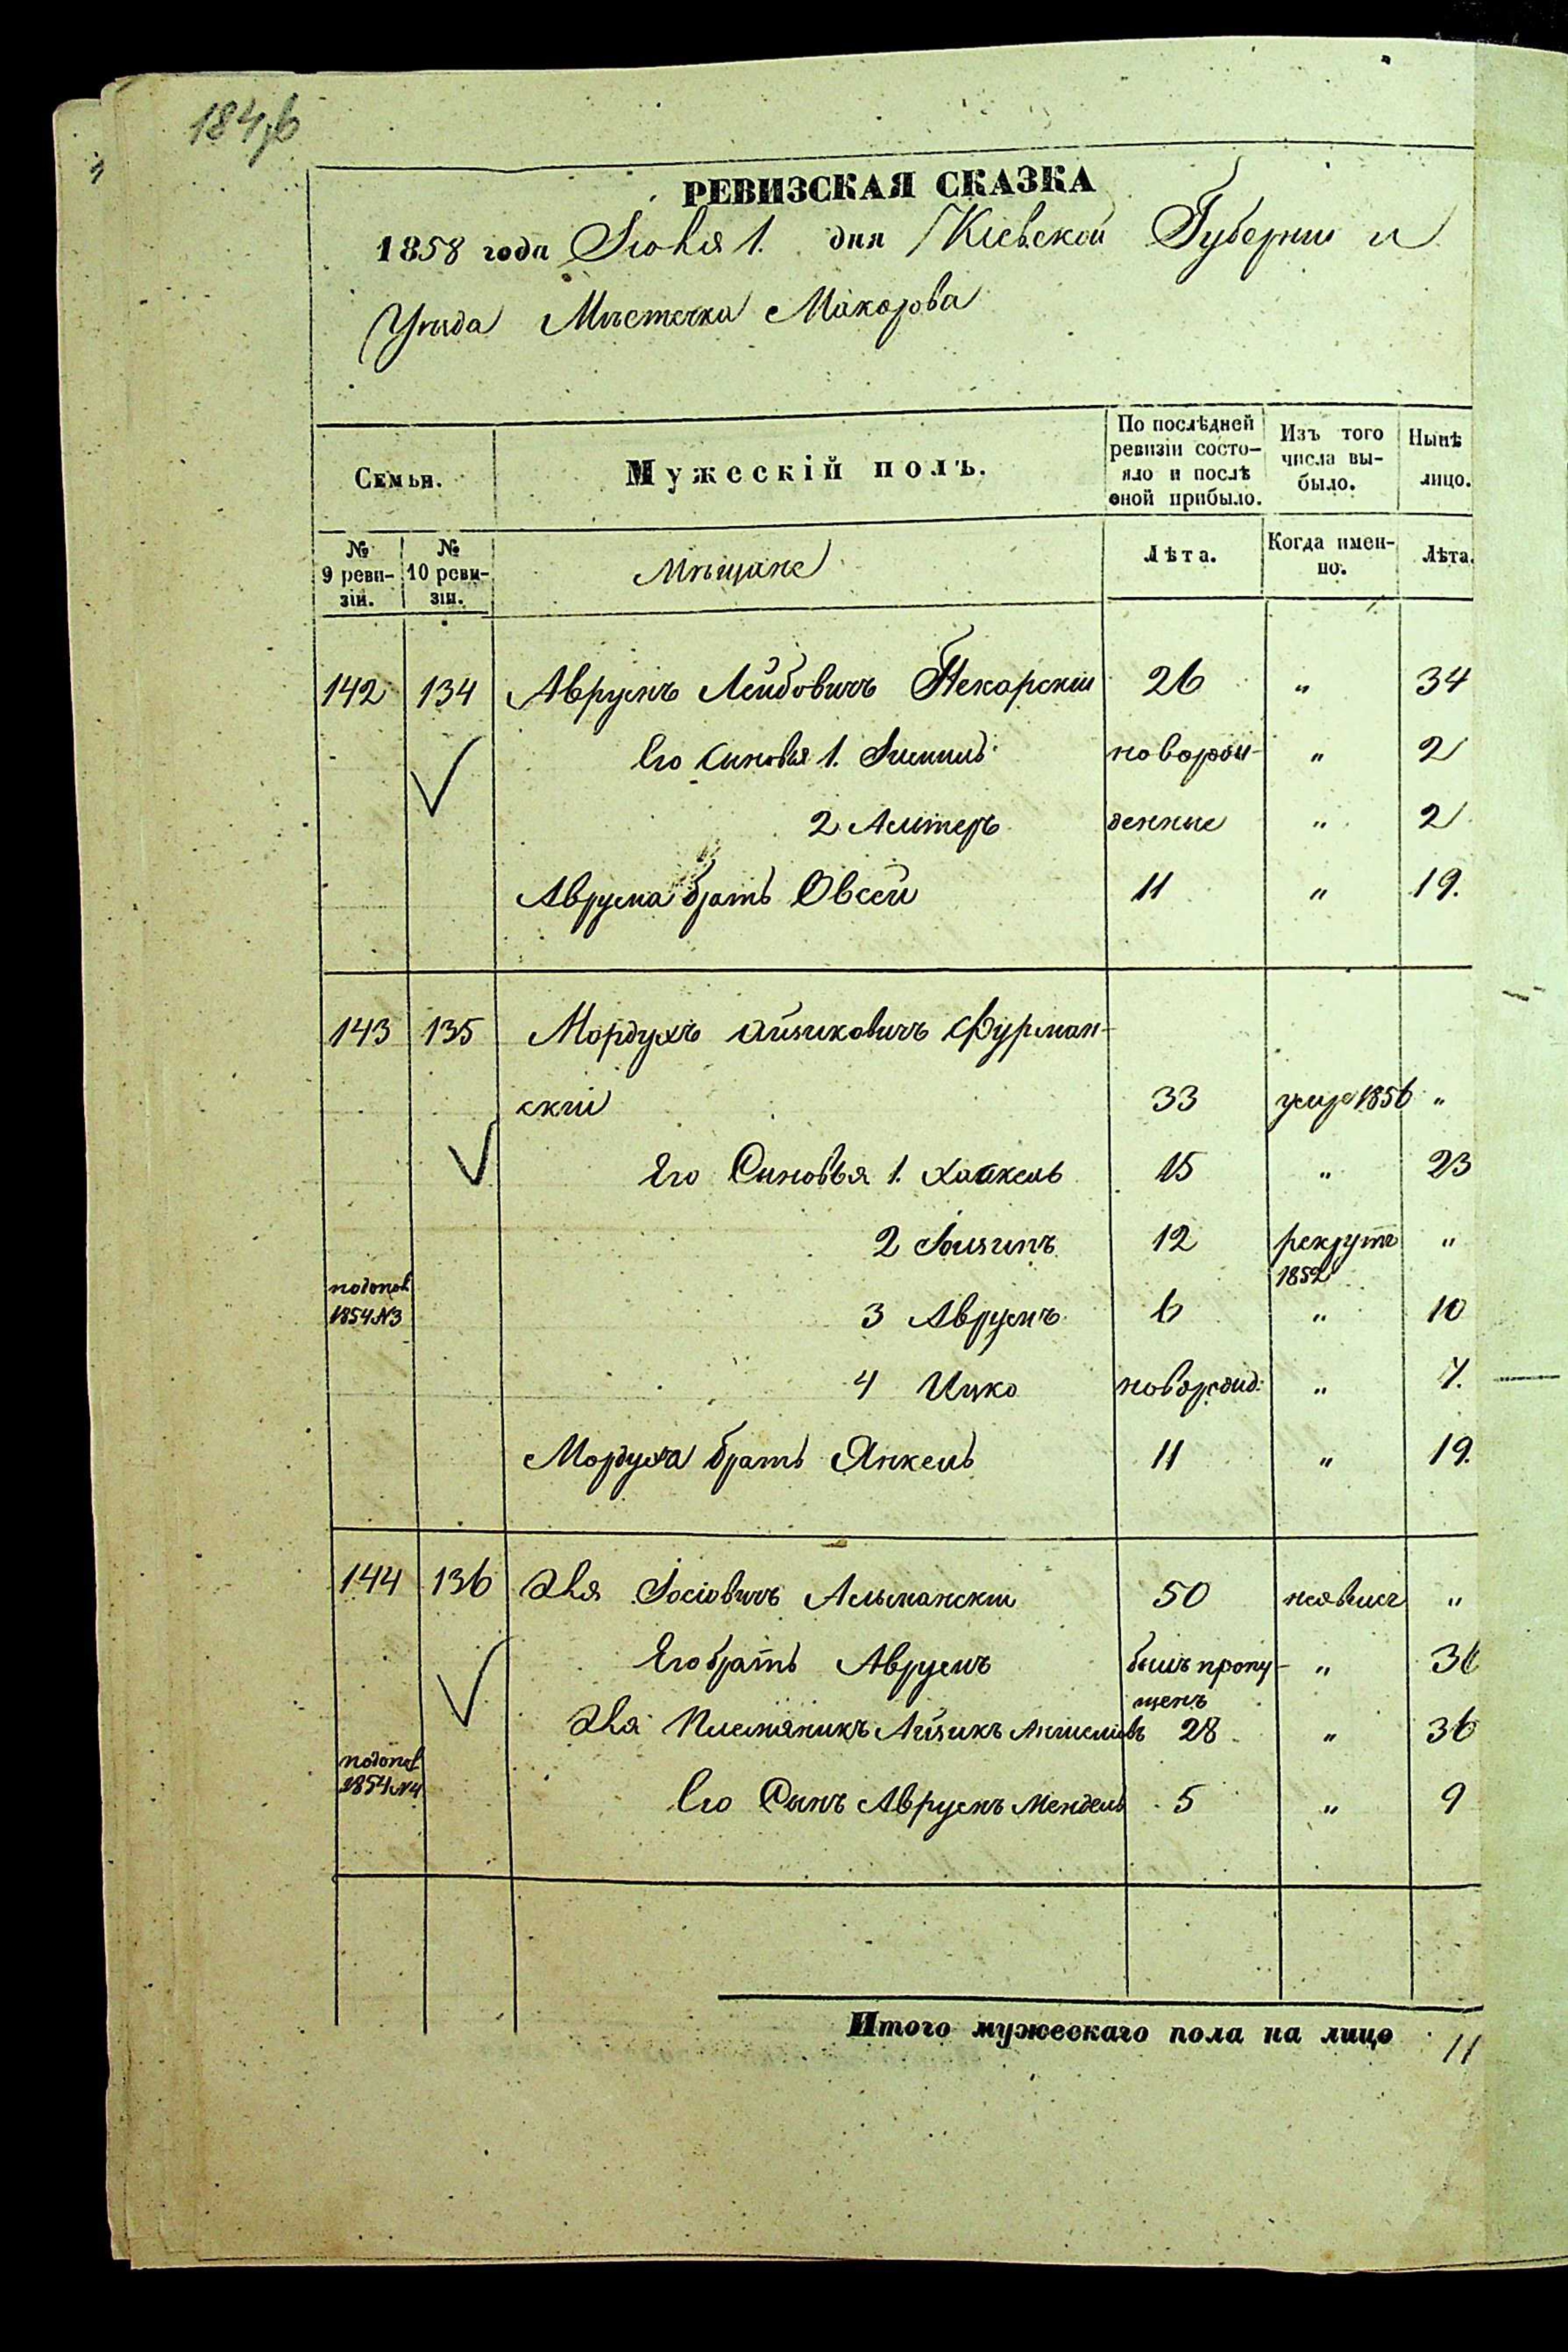 184об
РЕВИЗСКАЯ СКАЗКА
1858 года Іюня 1. дня Кіевской Губерніи и
Уѣзда Мѣстечка Макарова
Семьи.
Мужескій полъ.
По послѣдней ревизіи состо-яло и послѣ оной прибыло.
Изъ того числа вы-было.
Нынѣ лицо.
№ 9 реви-зіи.
№ 10 реви-зіи.
Мѣщане
Лѣта.
Когда имен-но.
Лѣта.
142 134 Аврумъ Лейбовичъ Пекарскій 26 " 34
Его Синовья 1. новорож- " 2
2 Альтеръ денные " 2
Аврума братъ Овсей 11 " 19.
143 135 Мордухъ Айзиковичъ Фурман-
скій 33 умре 1856 "
Его Синовья 1. Хаикель 15 " 23
2 12 рекрутъ 1852 "
пополн 1854 №3 3 Аврумъ 6 " 10
4 Ицко новорожд: " 7.
Мордуха братъ Янкель 11 " 19.
144 136 Эля Іосіовичъ Альманскій 50 неявка "
Его братъ Аврумъ былъ пропу- " 36
щенъ
Эля Племяникъ Айзикъ Аншелевъ 28 " 36
пополн 1854 №4 Его Сынъ Аврумъ Мендель 5 " 9
Итого мужескаго пола на лицо 11